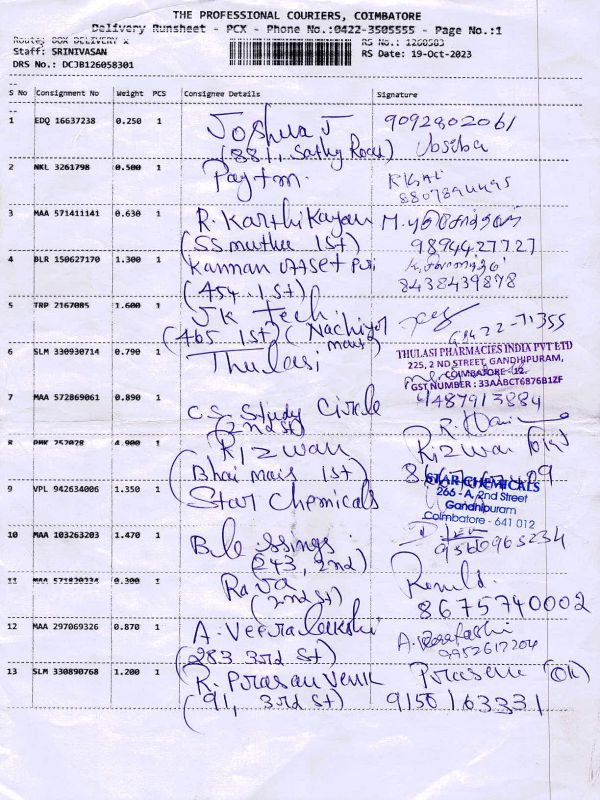 THE PROFESSIONAL COURIERS, COIMBATORE
Delivery Runsheet - PCX - Phone No.:0422-3505555 - Page No.:1
Route: BOX DELIVERY X RS No.: 1260583
Staff: SRINIVASAN RS Date: 19-Oct-2023
DRS No.: DCJB126058301
S No Consignment No Weight PCS Consignee Details Signature
1 EDQ 16637238 0.250 1 Joshua J 9092802061
(881, Sathy Road)
2 NKL 3261798 0.500 1 Paytm
3 MAA 571411141 0.630 1 R. Karthikayan
(SS muthu 1st) 9894427727
4 BLR 150627170 1.300 1 Kannan offset
(454, 1st) 8438439878
5 TRP 2167085 1.600 1 JK Tech
(465 1st) (Nachiyar
6 SLM 330930714 0.790 1 Thulasi THULASI PHARMACIES INDIA PVT LTD
225, 2 ND STREET, GANDHIPURAM,
COIMBATORE - 12.
GST NUMBER : 33AABCT6876B1ZF
7 MAA 572869061 0.890 1 CS Study Circle
(2nd st)
8 PMK 252028 4.900 1 Rizwan Rizwan
(Bhai mais 1st)
9 VPL 942634006 1.350 1 Star Chemicals STAR CHEMICALS
266 - A, 2nd Street
Gandhipuram
Coimbatore - 641 012
10 MAA 103263203 1.470 1 Blessings
(243, 2nd)
11 MAA 571820234 0.300 1 Raja
(2nd st) 8675740002
12 MAA 297069326 0.870 1 A. Veeralakshi
(283 3rd St) 9952617204
13 SLM 330890768 1.200 1 R. Prasan Venk (OK)
(91, 3rd St) 9150163331